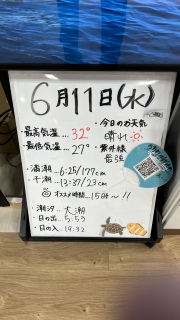 6月11日(水)
・最高気温…32°
・最低気温…27°
・今日のお天気
晴れ
・紫外線
最強
・満潮…6:25/177cm
・干潮…13:37/23cm
オススメ時間…15時〜!!
・潮汐…大潮
・日の出…5:53
・日の入…19:32